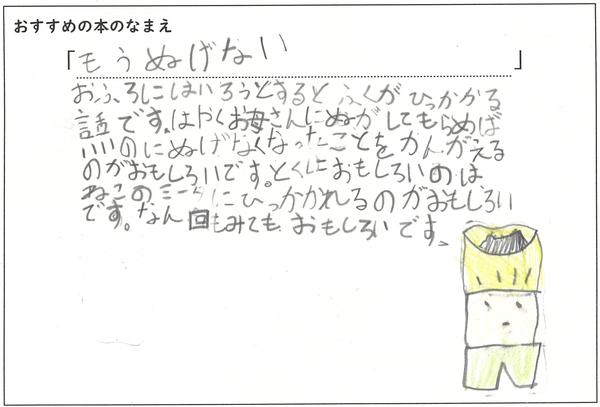 おすすめの本のなまえ
「もうぬげない」
おふろにはいろうとすると ふくがひっかかる
話です。はやくお母さんにぬがしてもらめば
いいのにぬげなくなったことをかんがえる
のがおもしろいです。とくにおもしろいのは
ねこのミーヤにひっかかれるのがおもしろい
です。なん回もみても、おもしろいです。